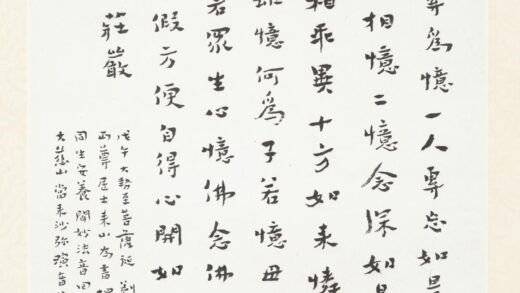 專為憶一人專忘如是
相憶二憶念深如是
相乖異十方如來憐
憶何為子若憶母
若眾生心憶佛念佛
假方便自得心開如
莊嚴
戊午大勢至菩薩誕
居士來山為書
同生安養聞妙法音回
大慈山當來沙彌演音